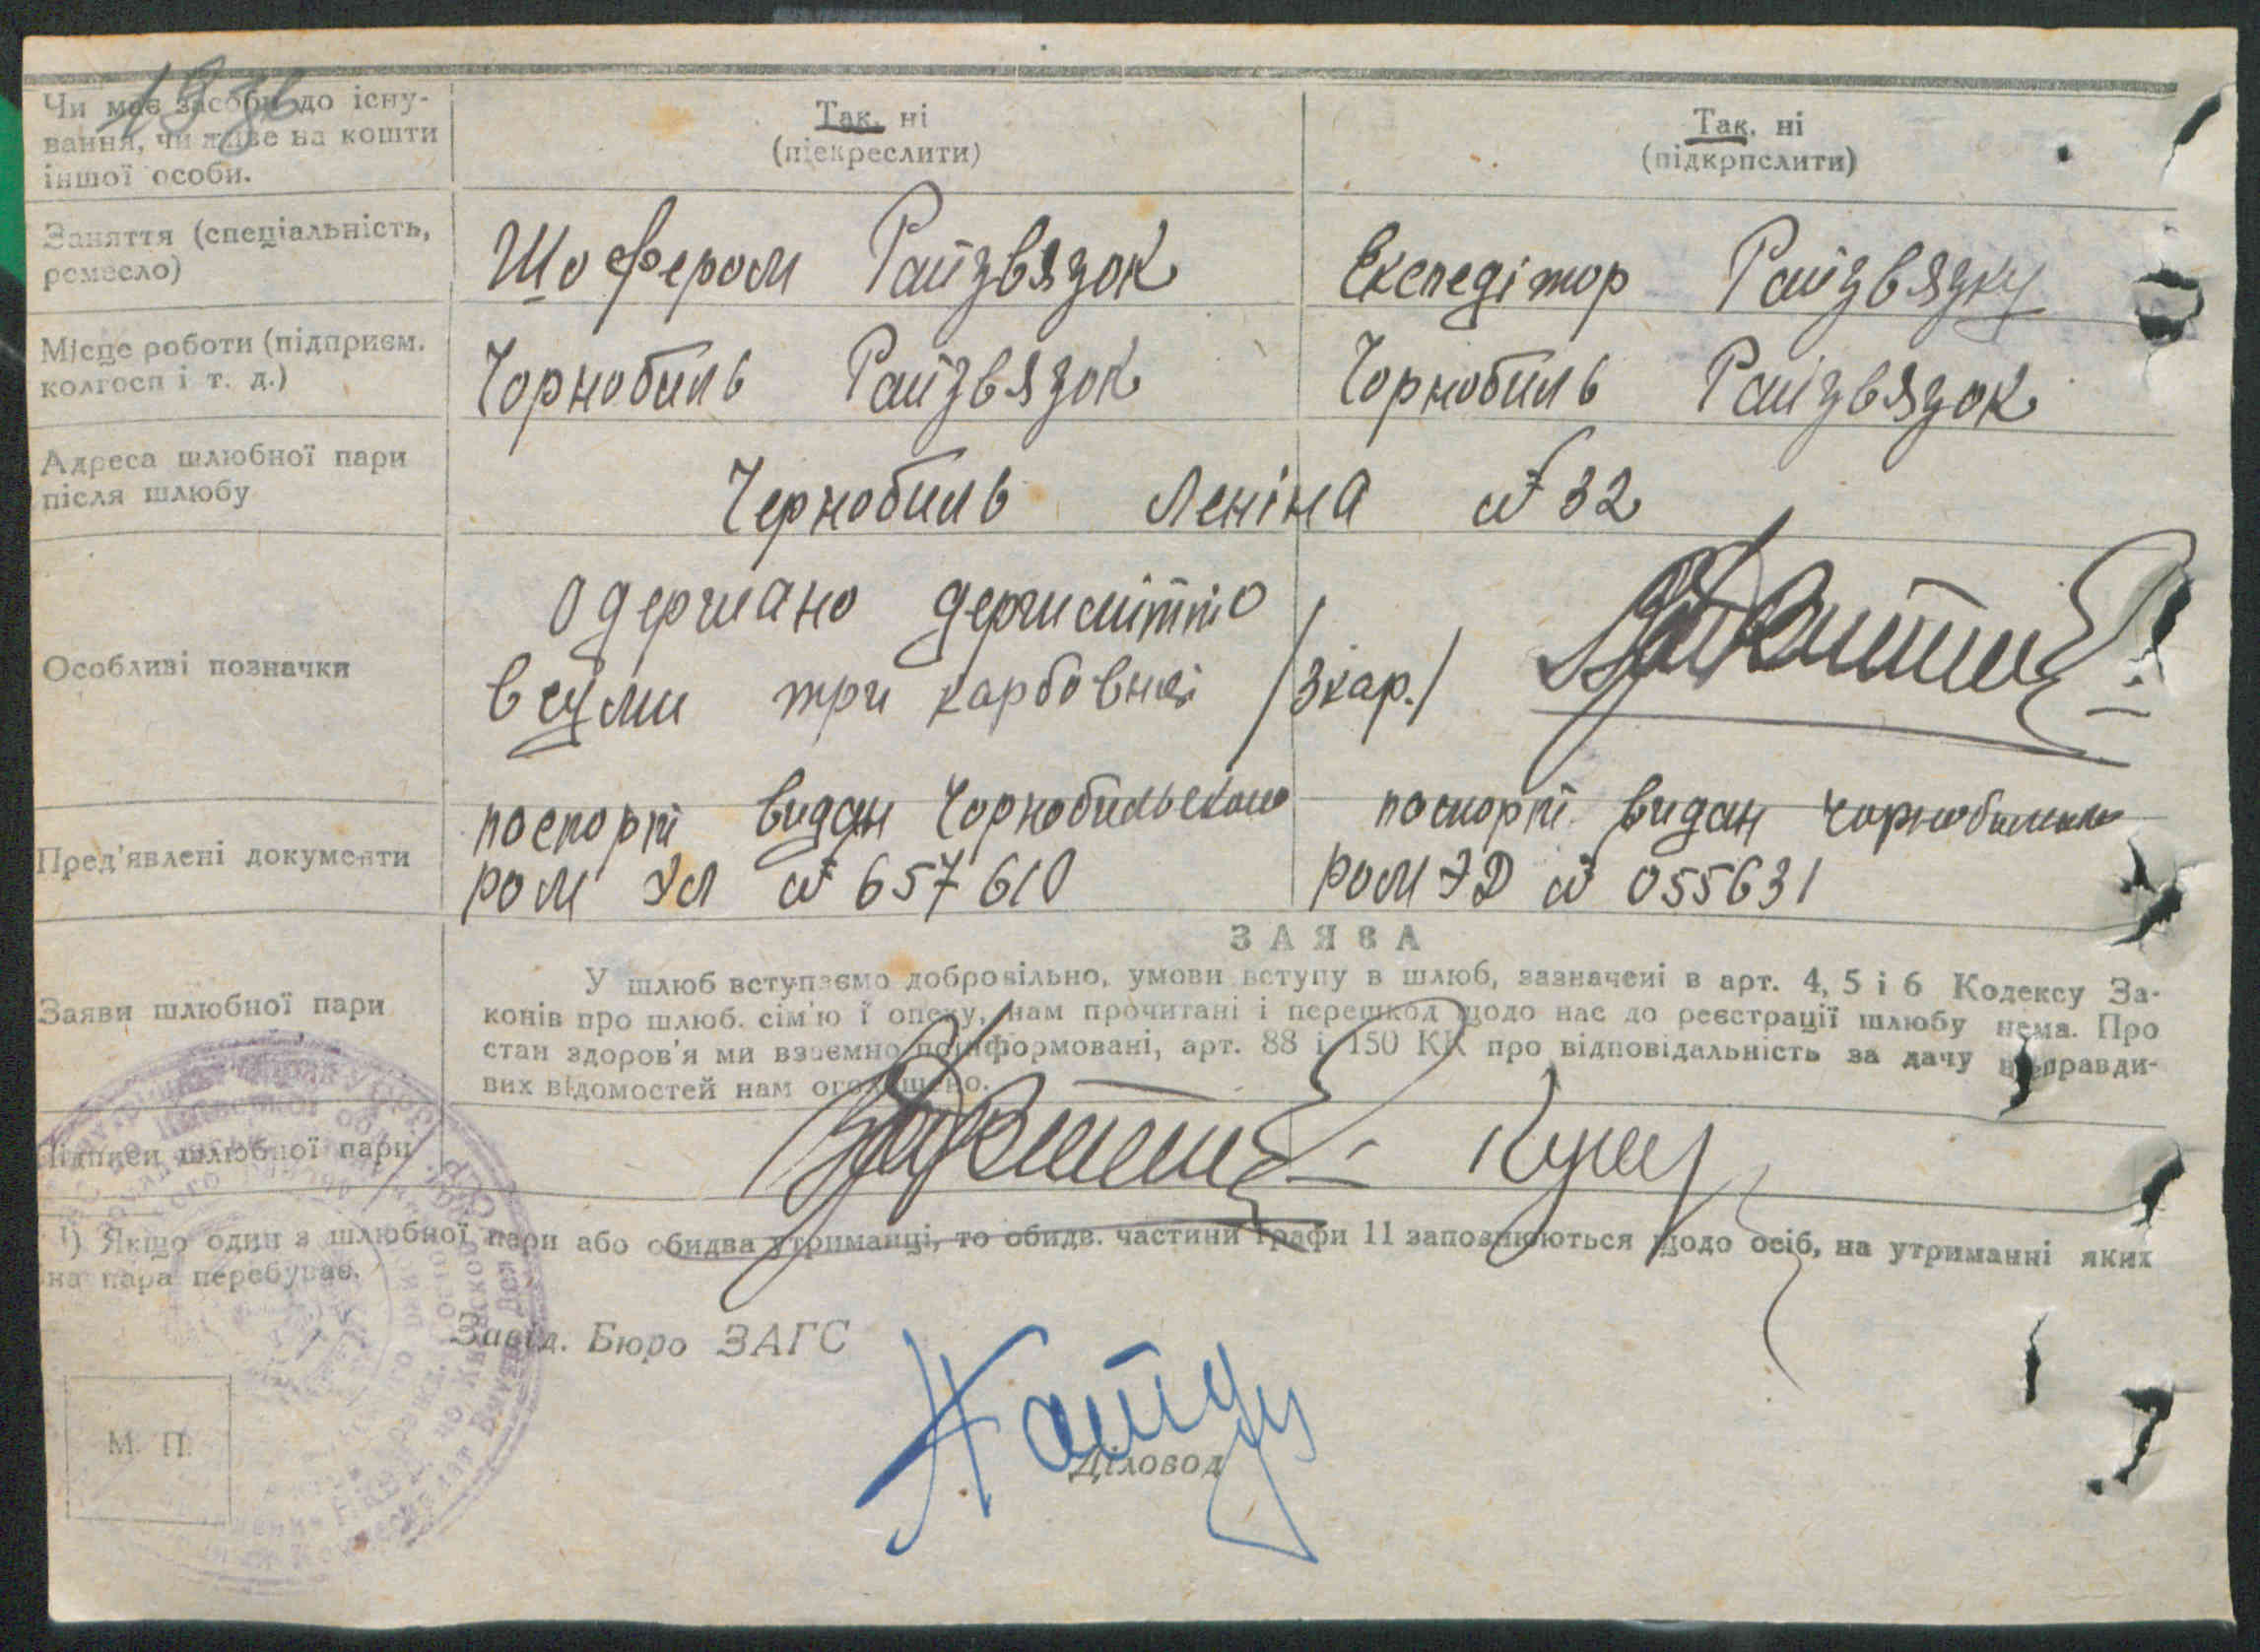 1936
Чи має засоби до існу-
вання, чи живе на кошти
іншої особи.
Так, ні
(підкреслити)
Так, ні
(підкрпслити)
Заняття (спеціальність,
ремесло)
Шофером Райзвязок
Експедітор Райзвязку
Місце роботи (підприєм.
колгосп і т. д.)
Чорнобиль Райзвязок
Чорнобиль Райзвязок
Адреса шлюбної пари
після шлюбу
Чернобиль Леніна № 32
Особливі позначки
Одержано держмітто
в сумі три карбовнці /3кар./
Пред'явлені документи
паспорт видан Чорнобильским
РОМ № 657610
паспорт видан Чорнобильским
РОМ ЭД № 055631
Заяви шлюбної пари
ЗАЯВА
У шлюб вступаємо добровільно, умови вступу в шлюб, зазначені в арт. 4, 5 і 6 Кодексу За-
конів про шлюб. сім'ю і опеку, нам прочитані і перешкод щодо нас до реєстрації шлюбу нема. Про
стан здоров'я ми взаємно поінформовані, арт. 88 і 150 КК про відповідальність за дачу неправди-
вих відомостей нам оголошено.
Підписи шлюбної пари
¹) Якщо один з шлюбної пари або обидва утриманці, то обидв. частини графи 11 заповнюються щодо осіб, на утриманні яких
на пара перебуває.
Завід. Бюро ЗАГС
Діловод
М. П.